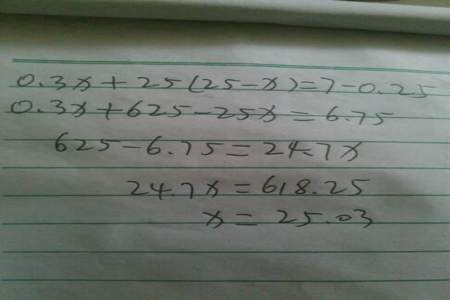 0.3x+25(25-x)=7-0.25
0.3x+625-25x=6.75
625-6.75=24.7x
24.7x=618.25
x=25.03